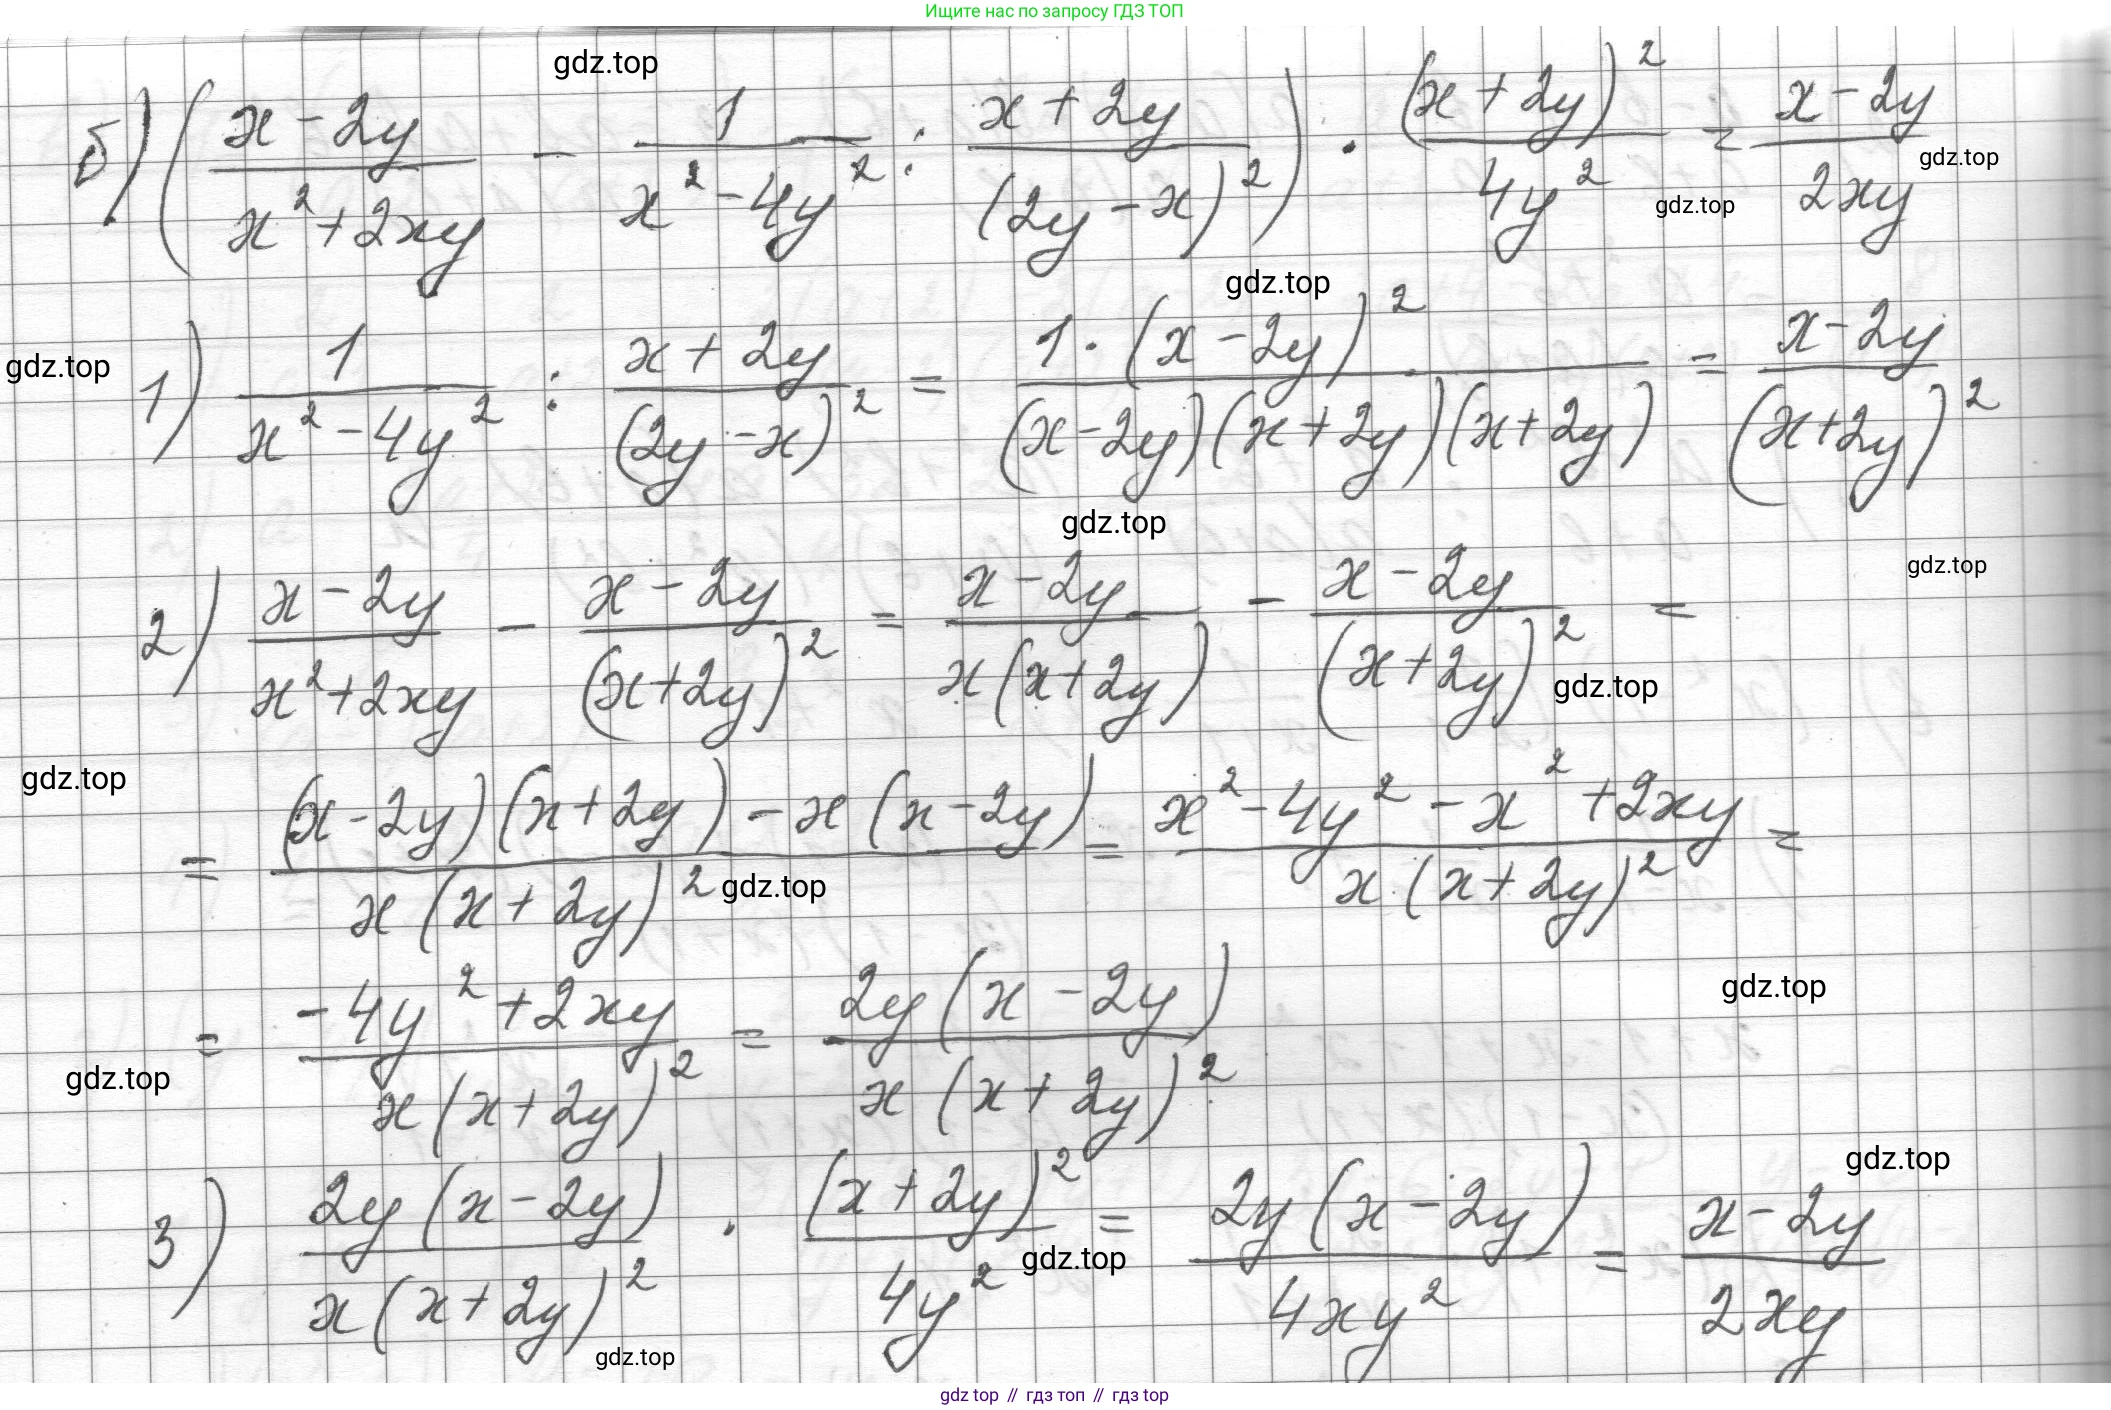 Ищите нас по запросу ГДЗ ТОП
gdz.top
б) ( (x - 2y)/(x² + 2xy) - 1/(x² - 4y²) : (x + 2y)/(2y - x)² ) · (x + 2y)²/4y² = (x - 2y)/2xy
gdz.top
gdz.top
gdz.top
gdz.top
1) 1/(x² - 4y²) : (x + 2y)/(2y - x)² = 1 · (x - 2y)²/(x - 2y)(x + 2y)(x + 2y) = (x - 2y)/(x + 2y)²
gdz.top
gdz.top
2) (x - 2y)/(x² + 2xy) - (x - 2y)/(x + 2y)² = (x - 2y)/x(x + 2y) - (x - 2y)/(x + 2y)² =
gdz.top
gdz.top
= ((x - 2y)(x + 2y) - x(x - 2y))/x(x + 2y)² = (x² - 4y² - x² + 2xy)/x(x + 2y)² =
gdz.top
gdz.top
= (-4y² + 2xy)/x(x + 2y)² = 2y(x - 2y)/x(x + 2y)²
gdz.top
gdz.top
3) 2y(x - 2y)/x(x + 2y)² · (x + 2y)²/4y² = 2y(x - 2y)/4xy² = (x - 2y)/2xy
gdz.top
gdz.top
gdz top // гдз топ // гдз top